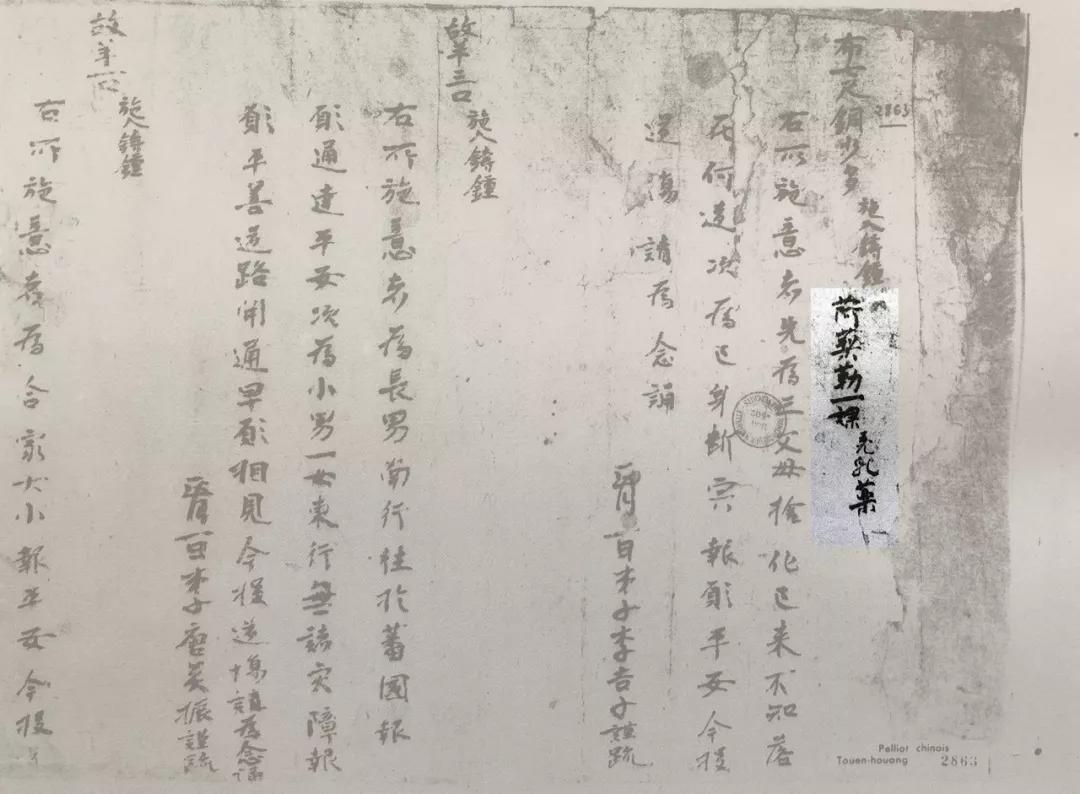 2863
布一尺銅少多 施入鑄鍾
荷蔾勒一課 充乳藥
右所施意者先為三父母捨化已來不知落
在何道次為己身斷宍報願平安今投
道場請為念誦
正月一日弟子李吉子謹疏
故羊三口 施入鑄鍾
右所施意者為長男南行往於蕃國報
願通達平安次為小男一女東行無諸灾障報
願平善道路開通早願相見今投道場請為念誦
正月一日弟子唐英振謹疏
故羊一口 施入鑄鍾
右所施意者為合家大小報平安今投
Pelliot chinois
Touen-houang 2863